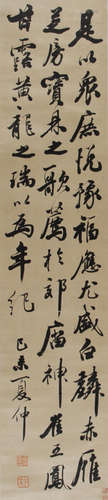 是以眾庶悅豫福應尤盛白麟赤雁
芝房寶鼎之歌薦於郊廟神雀五鳳
甘露黃龍之瑞以為年紀 己未夏仲